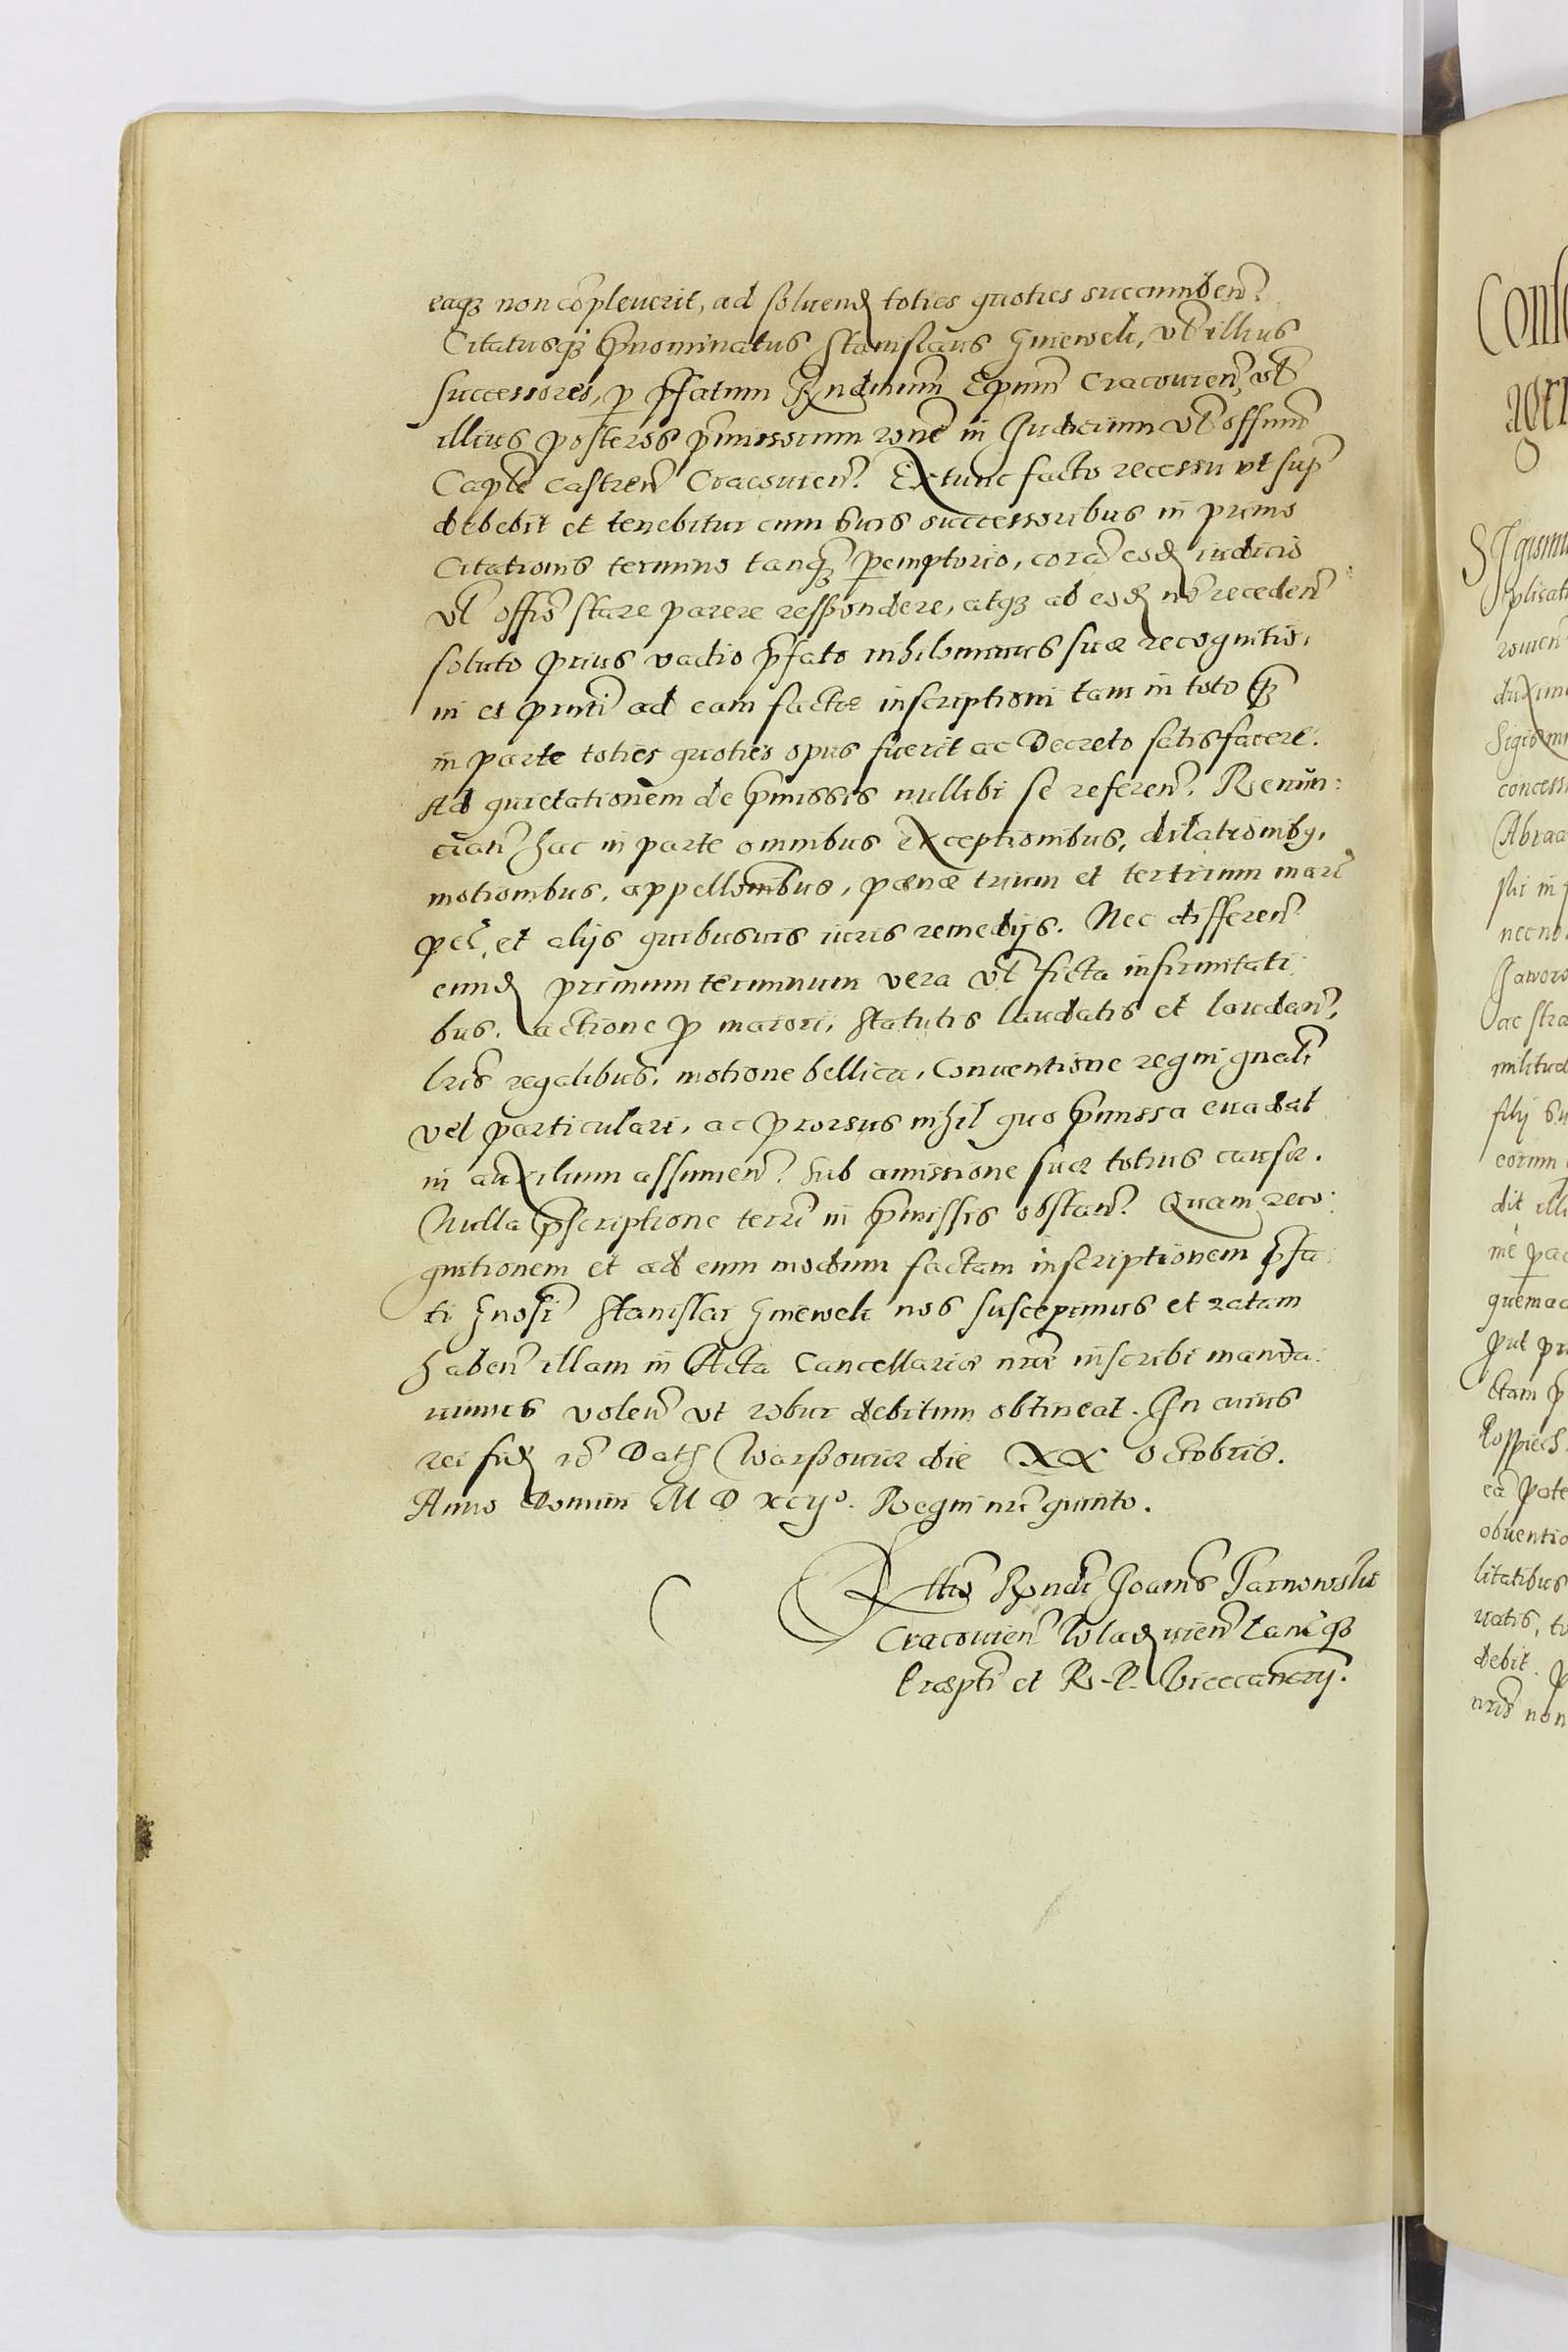 eaqȝ non cõpleverit, ad soluend toties quoties succumben̄.
Citatusqȝ p̄nominatus Stanislaus Gnieweli, vl̄ illius
successores, p p̄fatum Rndmum Epum Cracouien̄, vl̄
illius posteros p̄missorum rōne in Judicium vl̄ offium
Capłe castren̄ Cracouien̄. Extunc facto recessu ut sup̄
debebit et tenebitur cum suis successoribus in primo
Citationis termino tanqȝ pemptorio, corā eod iudicio
vl̄ offio stare parere respondere, atqȝ ab eod nō receden̄
soluto prius vadio p̄fato nihilominus suæ recognitio,
ni et pnti ad eam factæ inscriptioni tam in toto qȝ
in parte toties quoties opus fuerit ac Decreto satisfacere.
Ad quietationem de p̄missis nullibi se referen̄. Renun:
cian̄ hac in parte omnibus exceptionibus, dilationibȝ,
motionibus, appellōnibus, pœnæ trium et tertium mar̄
pec̄, et alijs quibusuis iuris remedijs. Nec differen̄
eund primum terminum vera vl̄ ficta infirmitati
bus. actione p maiori, statutis laudatis et laudan̄,
lr̄is regalibus, motione bellica, Conuentione regni gnali
vel particulari, ac prorsus nihil quo p̄missa euadat
in auxilium assumen̄. sub amissione suæ totius causæ.
Nulla p̄scriptione terr̄i in p̄missis obstan̄. Quam reco:
gnitionem et ad eum modum factam inscriptionem p̄fa:
ti Gnosi Stanislai Gnieweli nos suscepimus et ratam
haben̄ illam in Acta Cancellariæ nr̄æ inscribi manda:
uimus volen̄ ut robur debitum obtineat. In cuius
rei fid &c̄ Dat Warssouiæ die XX Octobris.
Anno Domini M D xcijo. Regni nr̄i quinto.
Rltio Rndi Joannis Tarnowski
Cracouien̄ Wladislauien̄ Lanc̄qȝ
Præpti et R. P. Vicecancrij.
Cons
agri
SIgismu
plicati
rouien
duxim
Sigism
concess
Abraa
necno
Jawors
ac stra
militud
filij su
eorum
dit illi
mē pac
quemad
put pr
ctam p
ea pate
obuentio
litatibus
uatis, tu
debit. p
uris non